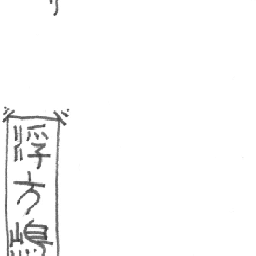 浮方嶋